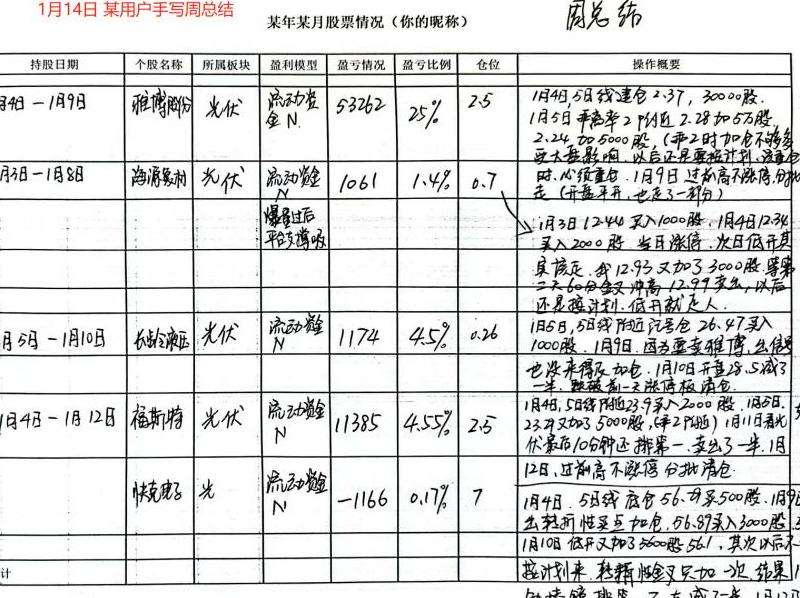 1月14日 某用户手写周总结
某年某月股票情况（你的昵称）
周总结
持股日期 个股名称 所属板块 盈利模型 盈亏情况 盈亏比例 仓位 操作概要
月4日－1月9日 雅博股份 光伏 流动资金N 53262 25% 2.5
1月4日,5日线建仓2.37, 30000股.
1月5日乖离率2附近2.28加5万股,
2.24加5000股,(乖2时加仓不够多
受大盘影响.以后还是要按计划.
时,必须重仓. 1月9日过前高不涨停,分批
走(开盘平开,也走了一部分)
月3日－1月8日 海源复材 光伏 流动资金N 1061 1.4% 0.7
爆量过后
平台支撑
1月3日 12.44买入1000股,1月4日12.34
买入2000股 当日涨停.次日低开其
实该走.我12.93又加了3000股.等第
二天60分金叉冲高12.99卖出,以后
还是按计划.低开就走人.
月5日－1月10日 长龄液压 光伏 流动资金N 1174 4.5% 0.26
1月5日,5日线附近 26.47买入
1000股. 1月9日.因为要卖雅博,
也没来得及加仓. 1月10日开盘28.5减了
一半.跌破前一天涨停板清仓.
1月4日－1月12日 福斯特 光伏 流动资金N 11385 4.55% 2.5
1月4日,5日线附近23.9买入2000股. 1月5日,
又加了5000股,(乖2附近) 1月11日看光
伏最后10分钟还排第一.卖出了一半.1月
12日.过前高不涨停分批清仓.
快克电子 光 流动资金N -1166 0.17% 7
1月4日.5日线底仓 买500股. 1月9日
出转折性买点加仓.56.89买入3000股.
1月10日低开又加了5600股56.1,其次以后不
计
按计划来.转折性金叉只加一次.结果1